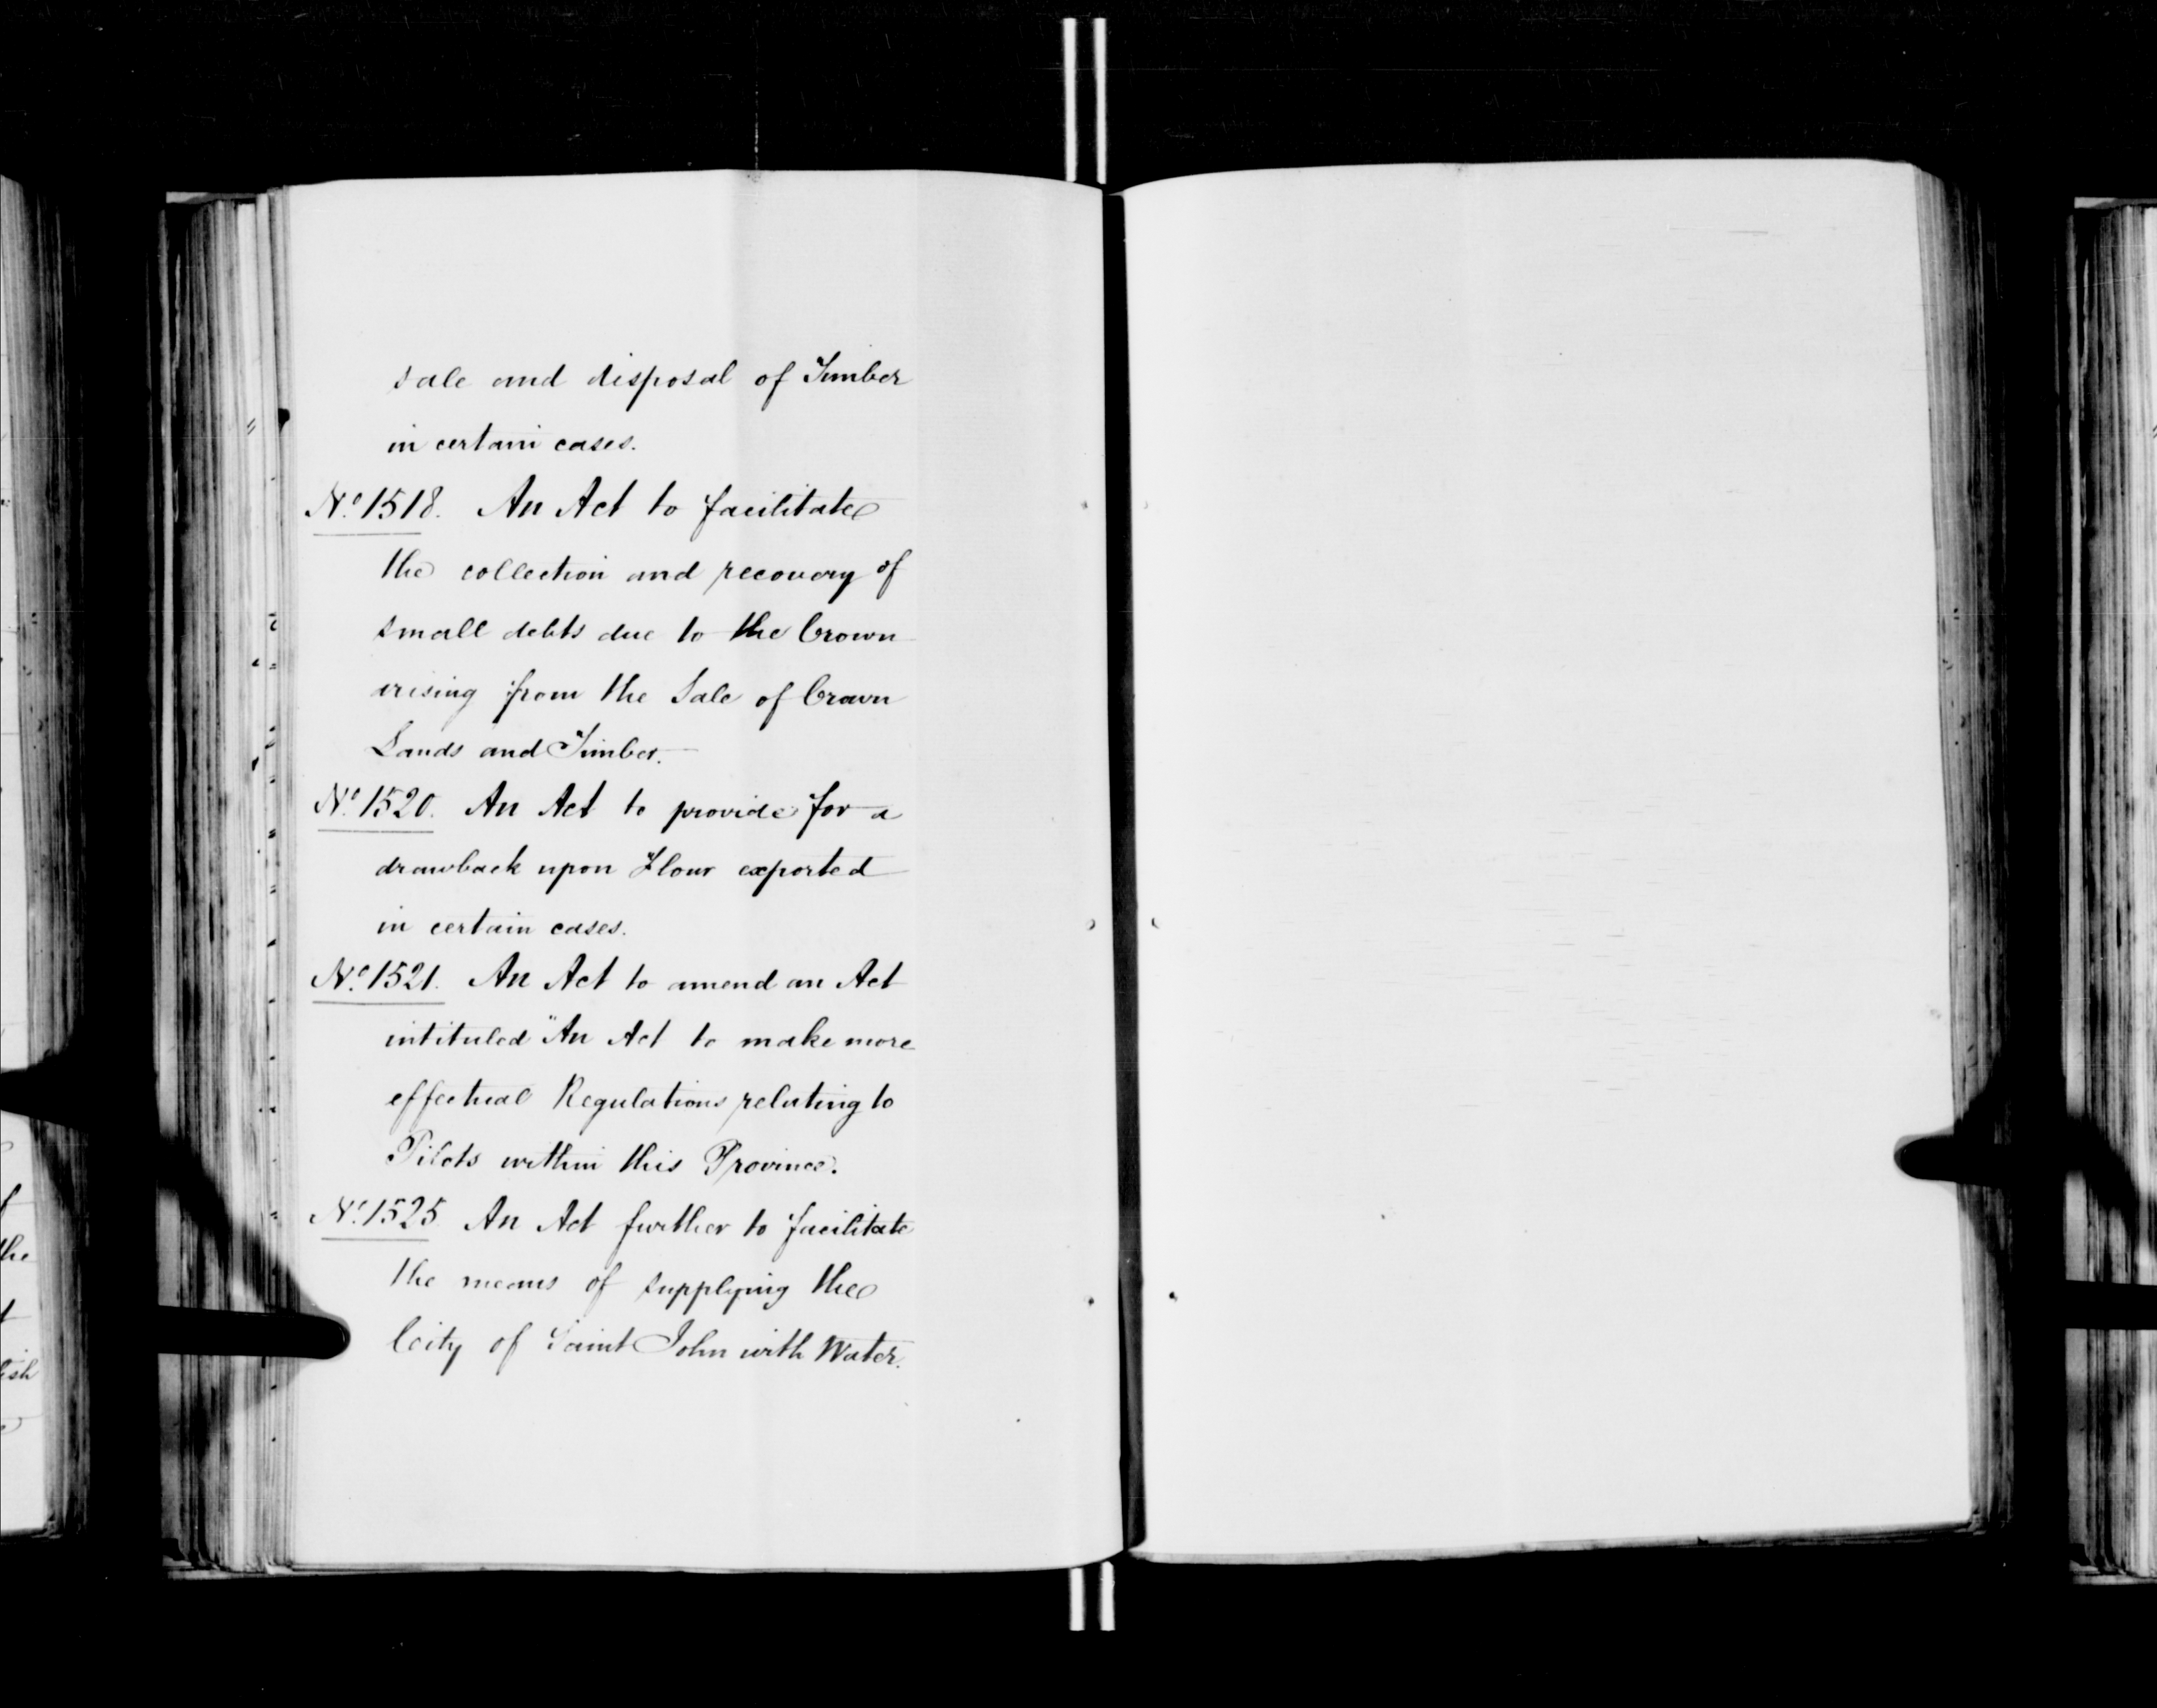 sale and disposal of Timber
in certain cases.
No. 1518. An Act to facilitate
the collection and recovery of
small debts due to the Crown
arising from the Sale of Crown
Lands and Timber.
No. 1520. An Act to provide for a
drawback upon Flour exported
in certain cases.
No. 1521. An Act to amend an Act
intituled "An Act to make more
effectual Regulations relating to
Pilots within this Province.
No. 1525 An Act further to facilitate
the means of supplying the
City of Saint John with Water.